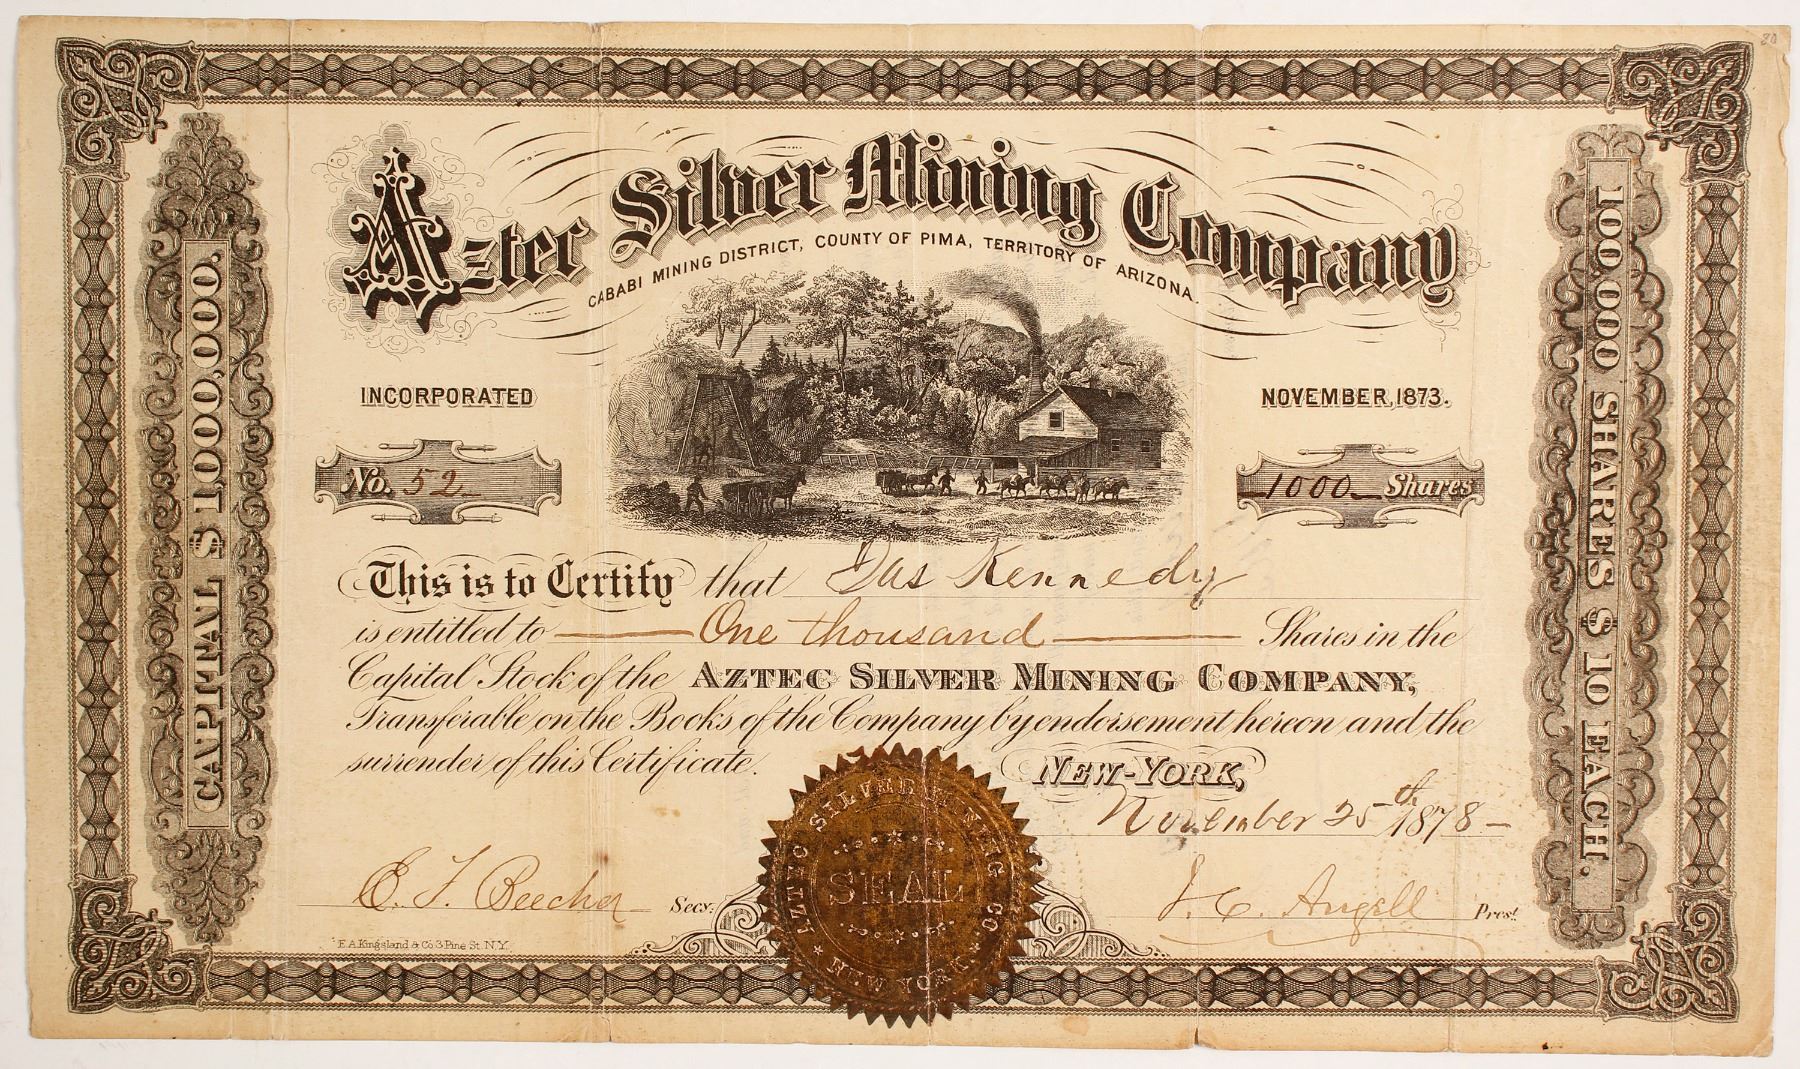 80
Aztec Silver Mining Company
CABABI MINING DISTRICT, COUNTY OF PIMA, TERRITORY OF ARIZONA.
INCORPORATED
NOVEMBER, 1873.
No. 52
1000 Shares
CAPITAL $ 1,000,000.
100,000 SHARES $ 10 EACH.
This is to Certify that Jas Kennedy
is entitled to One thousand Shares in the
Capital Stock of the AZTEC SILVER MINING COMPANY,
Transferable on the Books of the Company by endorsement hereon and the
surrender of this Certificate.
NEW-YORK,
November 25th 1878
E. F. Beecher Secy.
J. C. Angell Prest.
AZTEC SILVER MINING CO.
SEAL
NEW YORK
E. A. Kingsland & Co 3 Pine St. N.Y.